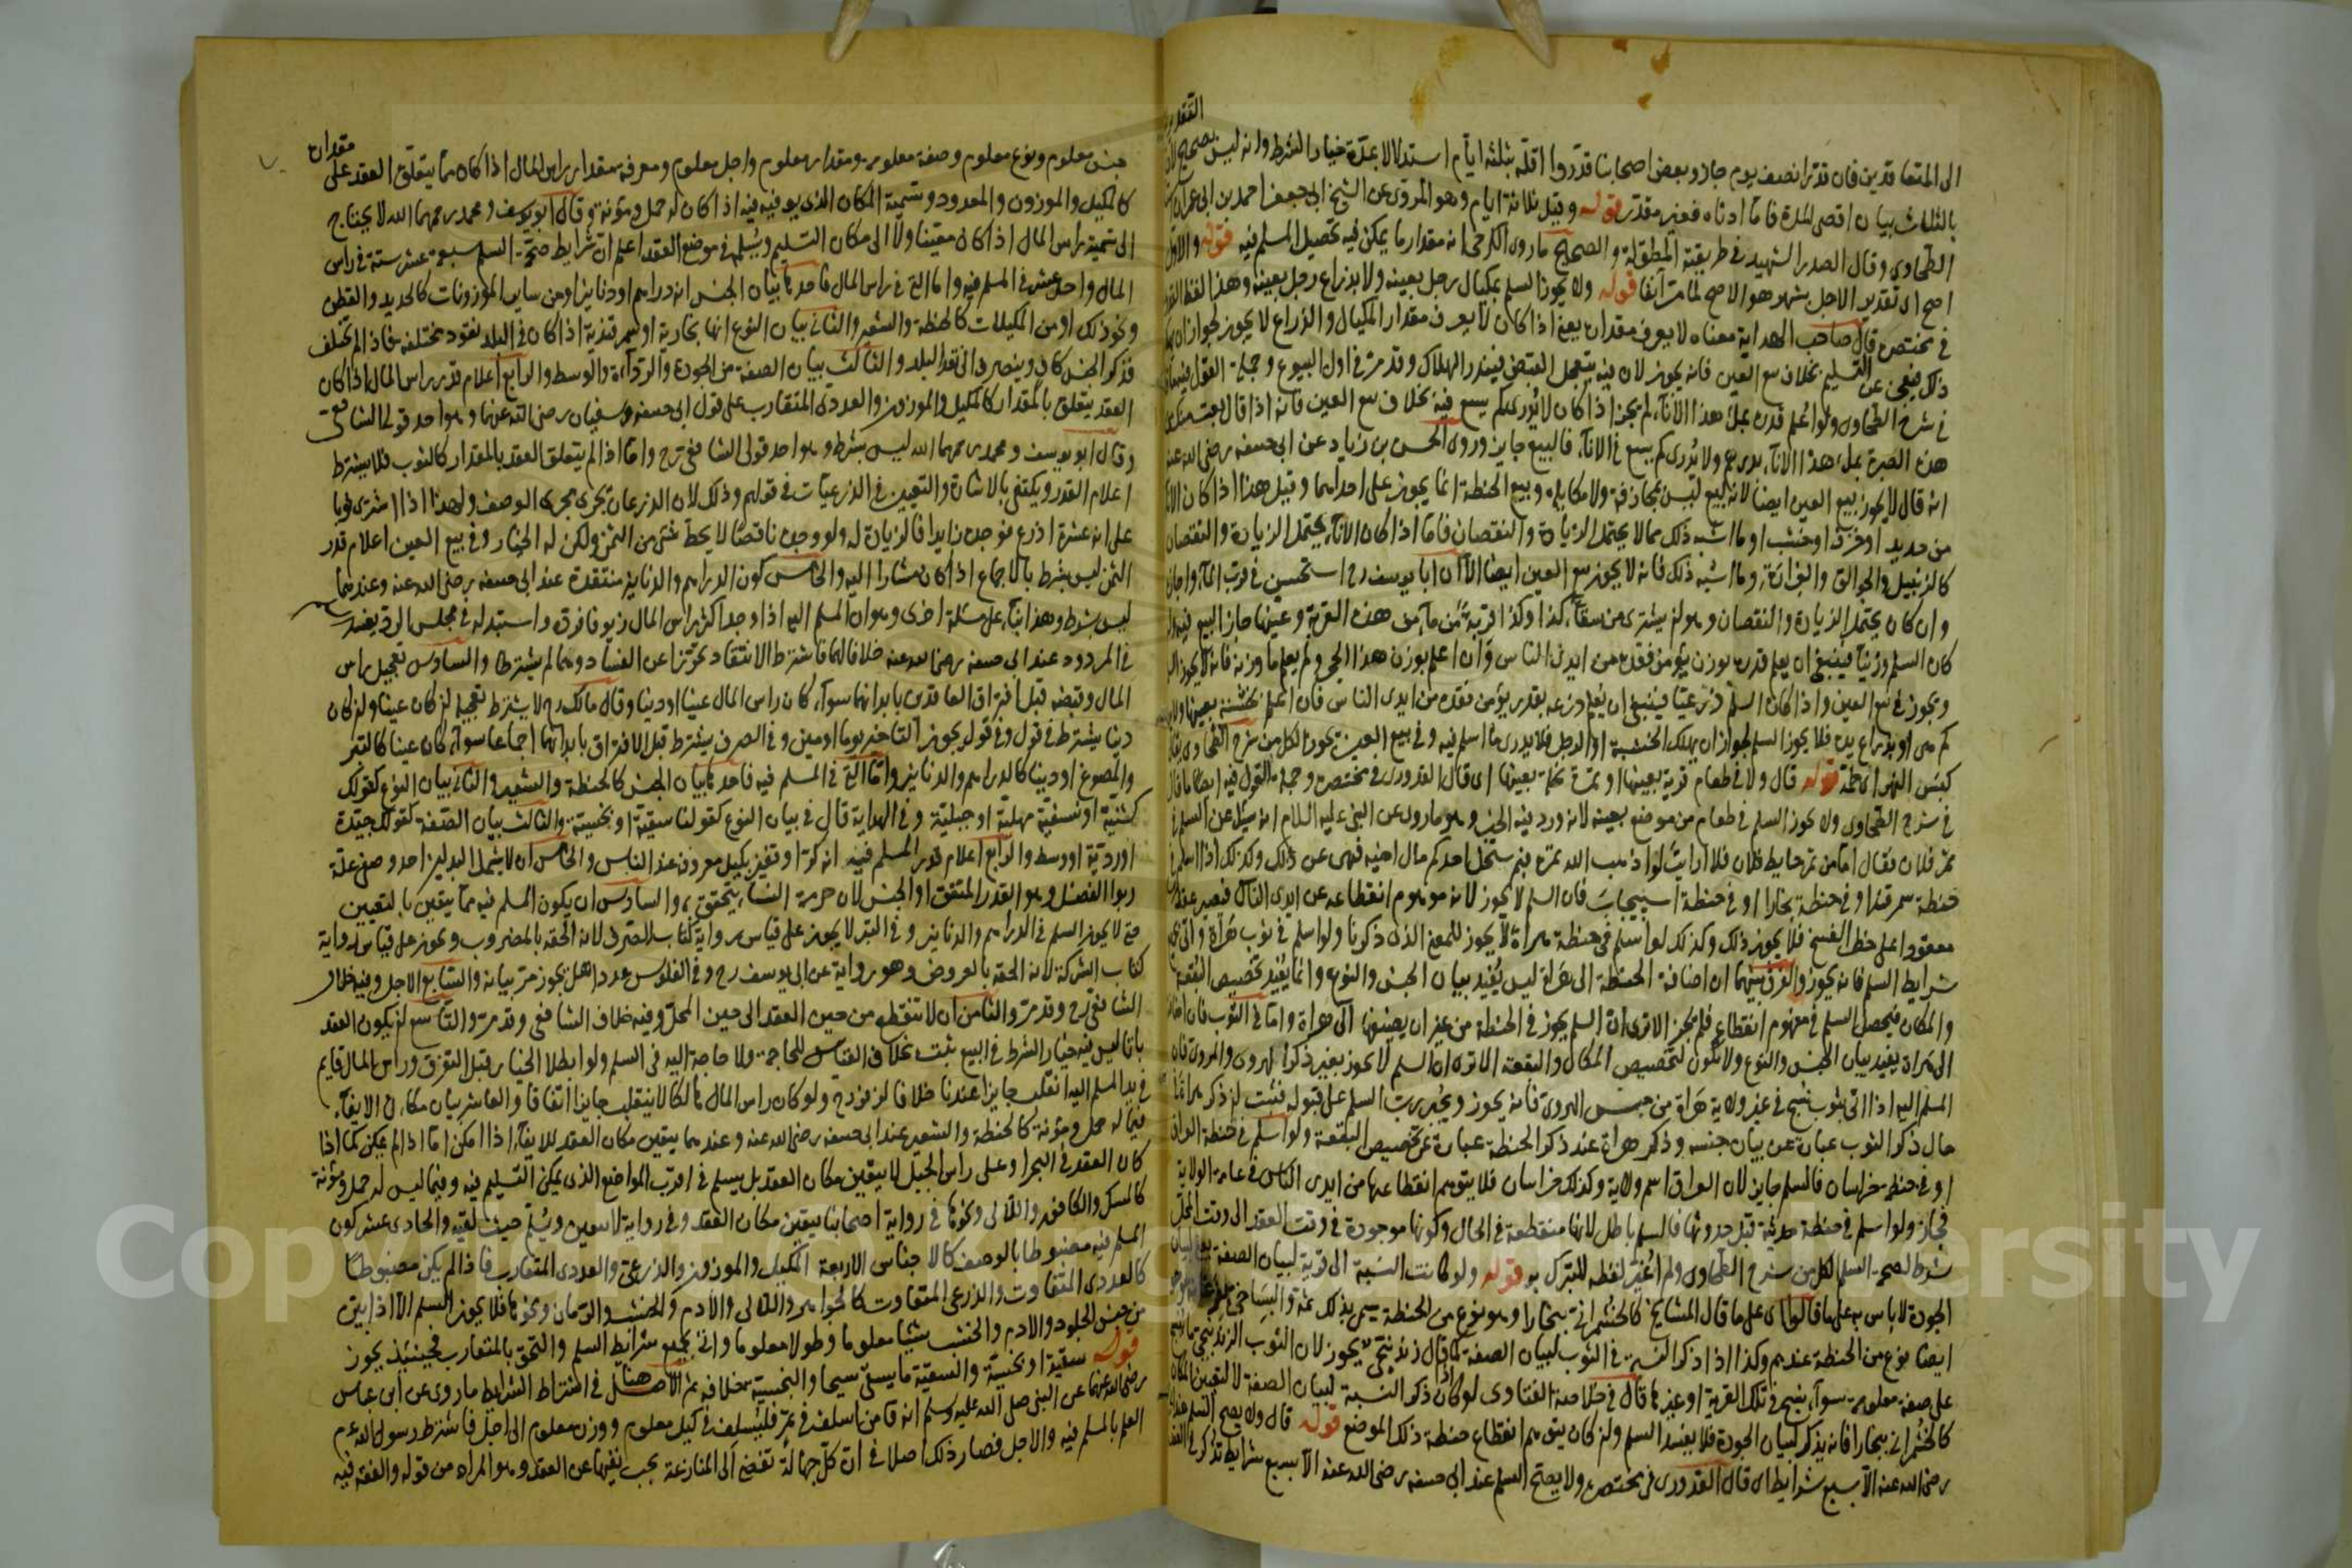 التقدير
الى المتعاقدين فان قدّر انصف يوم جاز وبعض اصحابنا قدّروا اقلّه بثلثة ايّام استدلالا بمدّة خيار الشرط وانه ليس بصحيح لان
بالثلث بيان اقصى المدة فامّا ادناه فغير مقدّر قوله وقيل ثلاثة ايام وهو المروىّ عن الشيخ ابى جعفر احمد بن ابى عمران
الطحاوى وقال الصدر الشهيد فى طريقته المطوّلة والصحيح ما روى الكرخى انه مقدار ما يمكن فيه تحصيل المسلم فيه قوله والاوّل
اصح اى تقدير الاجل بشهر هو الاصح لما مرّ آنفا قوله ولا يجوز السلم بمكيال رجل بعينه ولا بذراع رجل بعينه وهذا لفظ القدورى
فى مختصره قال صاحب الهداية معناه لا يعرف مقداره يعنى اذا كان لا يعرف مقدار المكيال والذراع لا يجوز لجواز ان يهلك
ذلك فيعجز عن التسليم بخلاف بيع العين فانه يجوز لان فيه يتعجل القبض فيندر الهلاك وقد مرّ فى اول البيوع وجملة القول فيه ما قال
فى شرح الطحاوى ولو اعلم قدره بملء هذا الاناء لم يجز اذا كان لا يُدرى كم يسع فيه بخلاف بيع العين فانه اذا قال بعت منك من
هذه الصبرة بملء هذا الاناء بدرهم ولا يُدرى كم يسع فى الاناء فالبيع جايز وروى الحسن بن زياد عن ابى حنيفه رضى الله عنه
انه قال لا يجوز بيع العين ايضا لانه بيع ليس بمجازفة ولا مكايلة وبيع الحنطة انما يجوز على احدهما وقيل هذا اذا كان الاناء
من حديد او خزف او خشب او ما اشبه ذلك مما لا يحتمل الزيادة والنقصان فامّا اذا كان الاناء يحتمل الزيادة والنقصان
كالزنبيل والجوالق والغرائر وما اشبه ذلك فانه لا يجوز بيع العين ايضا الا ان ابا يوسف رح استحسن فى قرب الماء واجاز
وان كان يحتمل الزيادة والنقصان وهو ان يشترى من سقاء كذا وكذا قربة من ماء من هذه القربة وعيّنها جاز البيع فيه وان
كان السلم وزنيّا فينبغى ان يعلم قدره بوزن يؤمن فقده من ايدى الناس وان اعلم بوزن هذا الحجر ولم يعلم ما وزنه فانه لا يجوز السلم
ويجوز فى بيع العين واذا كان السلم ذرعيّا فينبغى ان يُعلم ذرعه بقدر يؤمن فقده من ايدى الناس فان اعلم بخشبة بعينها ولا يدرى
كم هى او بذراع يده فلا يجوز السلم لجواز ان يهلك الخشبة او الرجل فلا يدرى ما اسلم فيه وفى بيع العين يجوز الكل من شرح الطحاوى
كبس النهر اى طمّه قوله قال ولا فى طعام قرية بعينها او ثمرة نخلة بعينها اى قال القدورى فى مختصره وجملة القول فيه ايضا ما قال
فى شرح الطحاوى ولا يجوز السلم فى طعام من موضع بعينه لانه ورد فيه الخبر وهو ما روى عن النبى عليه السلام انه سئل عن السلم فى
ثمر فلان فقال امّا من ثمر حايط فلان فلا ارايت لو اذهب الله ثمره بم يستحل احدكم مال اخيه فنهى عن ذلك وكذلك اذا اسلم فى
حنطة سمرقند او فى حنطة بخارا او فى حنطة اسبيجاب فان السلم لا يجوز لانه موهوم انقطاعه عن ايدى الناس فيصير عقدا
معقودا على خطر الفسخ فلا يجوز ذلك وكذلك لو اسلم فى حنطة هراة لا يجوز للمعنى الذى ذكرنا ولو اسلم فى ثوب هراة واتى
شرايط السلم فانه يجوز والفرق بينهما ان اضافة الحنطة الى هراة ليس يُفيد بيان الجنس والنوع وانما يُفيد تخصيص البقعة
والمكان فيحصل السلم فى موهوم انقطاع فلم يجز الا ترى ان السلم يجوز فى الحنطة من غير ان يضيفها الى هراة وامّا فى الثوب فان اضافته
الى هراة يفيد بيان الجنس والنوع ولا يكون لتخصيص المكان والبقعة الا ترى ان السلم لا يجوز بغير ذكر الهروى والمروى فان
المسلم اليه اذا اتى بثوب نسج فى غير ولاية هراة من جنس الهروى فانه يجوز ويُجبر رب السلم على قبوله فثبت ان ذكر هراة
حال ذكر الثوب عبارة عن بيان جنسه وذكر هراة عند ذكر الحنطة عبارة عن تخصيص البقعة ولو اسلم فى حنطة العراق
او فى حنطة خراسان فالسلم جايز لان العراق اسم ولاية وكذلك خراسان فلا يتوهم انقطاعها من ايدى الناس فى عامة الولاية
فجاز ولو اسلم فى حنطة حديثة قبل حدوثها فالسلم باطل لانها منقطعة فى الحال وكونها موجودة فى وقت العقد الى وقت المحل
شرط لصحة السلم الكل من شرح الطحاوى ولم اغير لفظه للتبرك به قوله ولو كانت النسبة الى قرية لبيان الصفة
الجودة لا باس به على ما قالوا اى على ما قال المشايخ كالخشمرانى ببخارا وهو نوع من الحنطة يسمى بذلك ثمه والبساخى
ايضا نوع من الحنطة عندهم وكذا اذا ذكر النسبة فى الثوب لبيان الصفة كما قال زندنيجى يجوز لان الثوب الزندنيجى ما ينسج
على صفة معلومة سواء ينسج فى تلك القرية او غيرها قال فى خلاصة الفتاوى لو كان ذكر النسبة لبيان الصفة لا لتعيين المكان
كالخشمرانى ببخارا فانه يذكر لبيان الجودة فلا يفسد السلم وان كان يتوهم انقطاع حنطة ذلك الموضع قوله قال ولا يصح السلم عند ابى
رضى الله عنه الا بسبع شرايط اى قال القدورى فى مختصره ولا يصح السلم عند ابى حنيفه رضى الله عنه الا بسبع شرايط تذكر فى العقد
جنس معلوم ونوع معلوم وصفة معلومة ومقدار معلوم واجل معلوم ومعرفة مقدار راس المال اذا كان مما يتعلق العقد على مقداره
كالمكيل والموزون والمعدود وتسمية المكان الذى يوفيه فيه اذا كان له حمل ومؤنة وقال ابو يوسف ومحمد رحمهما الله لا يحتاج
الى تسمية راس المال اذا كان معيّنا ولا الى مكان التسليم ويسلمه فى موضع العقد اعلم ان شرايط صحّة السلم سبعة عشر ستة فى راس
المال واحد عشر فى المسلم فيه واما التى فى راس المال فاحدها بيان الجنس انه دراهم او دنانير او من ساير الموزونات كالحديد والقطن
ونحو ذلك او من المكيلات كالحنطة والشعير والثانى بيان النوع انها بخارية او سمرقندية اذا كان فى البلد نقود مختلفة فاذا لم تختلف
فذكر الجنس كاف وينصرف الى نقد البلد والثالث بيان الصفة من الجودة والرداءة والوسط والرابع اعلام قدر راس المال اذا كان
العقد يتعلق بالمقدار كالمكيل والموزون والعددى المتقارب على قول ابى حنيفه وسفيان رضى الله عنهما وهو احد قولى الشافعى
وقال ابو يوسف ومحمد رحمهما الله ليس بشرط وهو احد قولى الشافعى رح وامّا اذا لم يتعلق العقد بالمقدار كالثوب فلا يشترط
اعلام القدر ويكتفى بالاشارة والتعيين فى الذرعيات فى قولهم وذلك لان الذرعان يجرى مجرى الوصف ولهذا اذا اشترى ثوبا
على انه عشرة اذرع فوجده زايدا فالزيادة له ولو وجده ناقصا لا يحط شئ من الثمن ولكن له الخيار وفى بيع العين اعلام قدر
الثمن ليس بشرط بالاجماع اذا كان مشارا اليه والخامس كون الدراهم والدنانير منتقدة عند ابى حنيفه رضى الله عنه وعندهما
ليس بشرط وهذا بناء على مسئلة اخرى وهو ان المسلم اليه اذا وجد اكثر راس المال زيوفا فرده واستبدله فى مجلس الرد يفسد
فى المردود عند ابى حنيفه رضى الله عنه خلافا لهما فاشترط الانتقاد تحرّزا عن الفساد وهما لم يشترطا والسادس تعجيل راس
المال وقبضه قبل افتراق العاقدين بابدانهما سواء كان راس المال عينا او دينا وقال مالك رح لا يشترط تعجيله ان كان عينا وان كان
دينا يشترط فى قول وفى قول يجوز التاخير يوما او يومين وفى الصرف يشترط قبل الافتراق بابدانهما اجماعا سواء كان عينا كالتبر
والمصوغ او دينا كالدراهم والدنانير وامّا التى فى المسلم فيه فاحدها بيان الجنس كالحنطة والشعير والثانى بيان النوع كقولك
كشية او نسفية سهلية او جبلية وفى الهداية قال فى بيان النوع كقولنا سقية او بخسية والثالث بيان الصفة كقولك جيّدة
او رديّة او وسط والرابع اعلام قدر المسلم فيه انه كرّ او قفيز بكيل معروف عند الناس والخامس ان لا يشمل البدلين احد وصفى علّة
ربوا الفضل وهو القدر المتفق او الجنس لان حرمة النساء يتحقق به والسادس ان يكون المسلم فيه مما يتعيّن بالتعيين
حتى لا يجوز السلم فى الدراهم والدنانير وفى التبر لا يجوز على قياس رواية كتاب الصرف لانه الحقه بالمضروب ويجوز على قياس رواية
كتاب الشركة لانه الحقه بالعروض وهو رواية عن ابى يوسف رح وفى الفلوس عددا هل يجوز مرّ بيانه والسابع الاجل وفيه خلاف
الشافعى رح وقد مرّ والثامن ان لا تنقطع من حين العقد الى حين المحلّ وفيه خلاف الشافعى وقد مرّ والتاسع ان يكون العقد
باتّا ليس فيه خيار الشرط فى البيع ثبت بخلاف القياس للحاجة ولا حاجة اليه فى السلم ولو ابطلا الخيار قبل التفرق وراس المال قايم
فى يد المسلم اليه انقلب جايزا عندنا خلافا لزفر رح ولو كان راس المال هالكا لا ينقلب جايزا اتفاقا والعاشر بيان مكان الايفاء
فيما له حمل ومؤنة كالحنطة والشعير عند ابى حنيفه رضى الله عنه وعندهما يتعين مكان العقد للايفاء اذا امكن امّا اذا لم يمكن كما اذا
كان العقد فى البحر او على راس الجبل لا يتعين مكان العقد بل يسلم فى اقرب المواضع الذى يمكن التسليم فيه وفيما ليس له حمل ومؤنة
كالمسك والكافور واللآلى ونحوها فى رواية اصحابنا يتعين مكان العقد وفى رواية لا يتعين ويُسلّم حيث لقيه والحادى عشر كون
المسلم فيه مضبوطا بالوصف كالاجناس الاربعة المكيل والموزون والذرعى والعددى المتقارب فاذا لم يكن مضبوطا
كالعددى المتفاوت والذرعى المتفاوت كالجواهر واللآلى والادم والخشب والرمان ونحوها فلا يجوز السلم الا اذا بيّن
من جنس الجلود والادم والخشب شيئا معلوما وطولا معلوما واتى بجميع شرايط السلم والتحق بالمتقارب فحينئذ يجوز
قوله سقية او بخسية والسقية ما يسقى سيحا والبخسية بخلافه ثم الاصل هنا فى اشتراط الشرايط ما روى عن ابن عباس
رضى الله عنهما عن النبى صلى الله عليه وسلم انه قال من اسلف فى ثمر فليسلف فى كيل معلوم ووزن معلوم الى اجل فاشترط رسول الله عم
العلم بالمسلم فيه والاجل فصار ذلك اصلا فى ان كلّ جهالة تفضى الى المنازعة يجب نفيها عن العقد وهو المراد من قوله والفقه فيه
Copyright © King Saud University